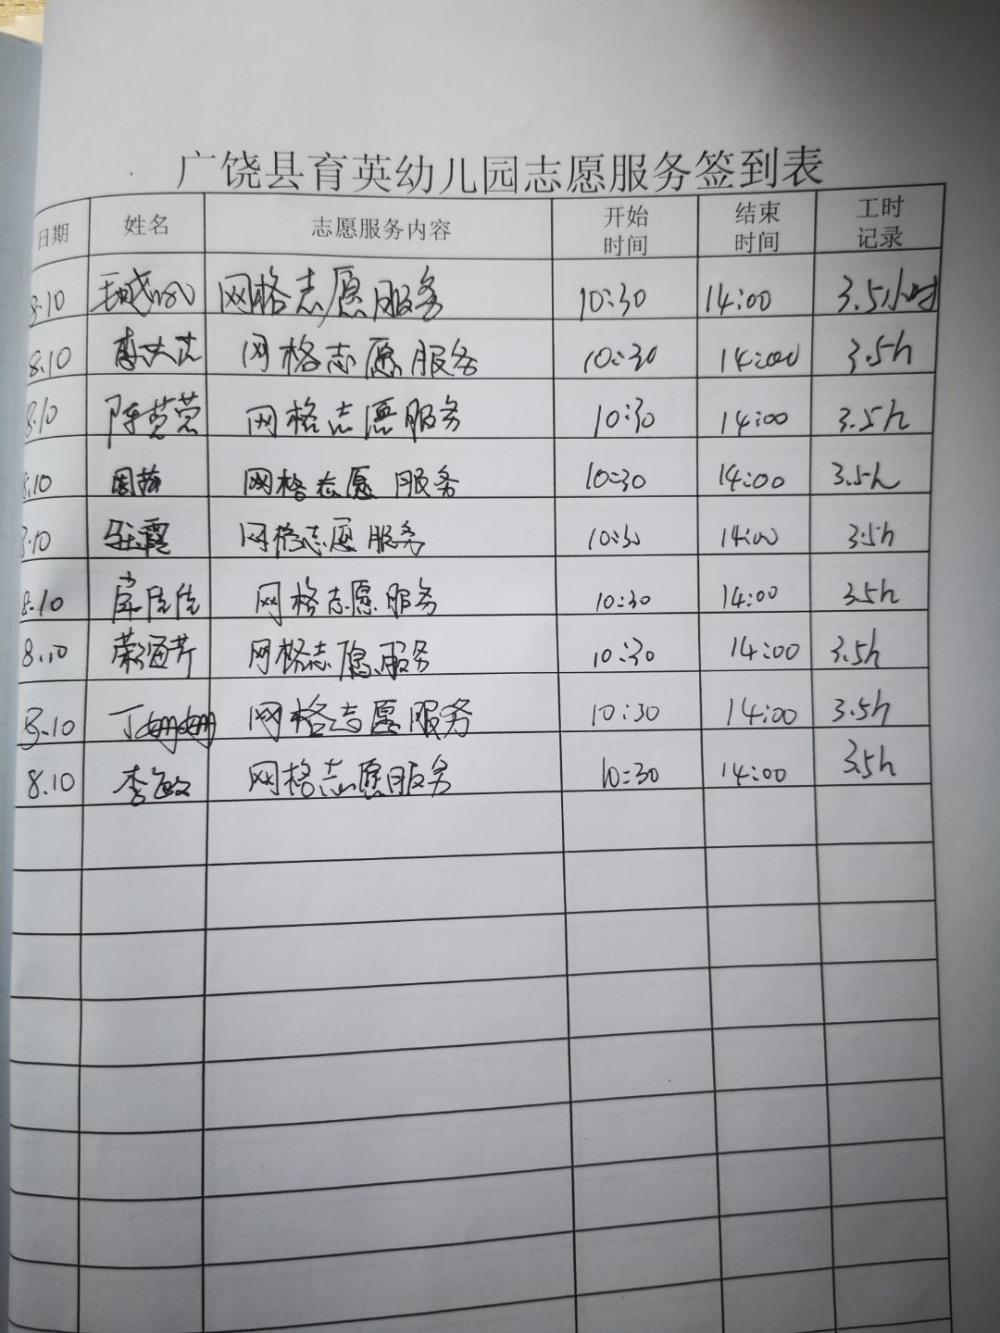 广饶县育英幼儿园志愿服务签到表
日期 姓名 志愿服务内容 开始时间 结束时间 工时记录
8.10 网格志愿服务 10:30 14:00 3.5小时
8.10 网格志愿服务 10:30 14:00 3.5h
8.10 陈莹莹 网格志愿服务 10:30 14:00 3.5h
8.10 网格志愿服务 10:30 14:00 3.5h
8.10 网格志愿服务 10:30 14:00 3.5h
8.10 网格志愿服务 10:30 14:00 3.5h
8.10 网格志愿服务 10:30 14:00 3.5h
8.10 丁姗姗 网格志愿服务 10:30 14:00 3.5h
8.10 李敏 网格志愿服务 10:30 14:00 3.5h